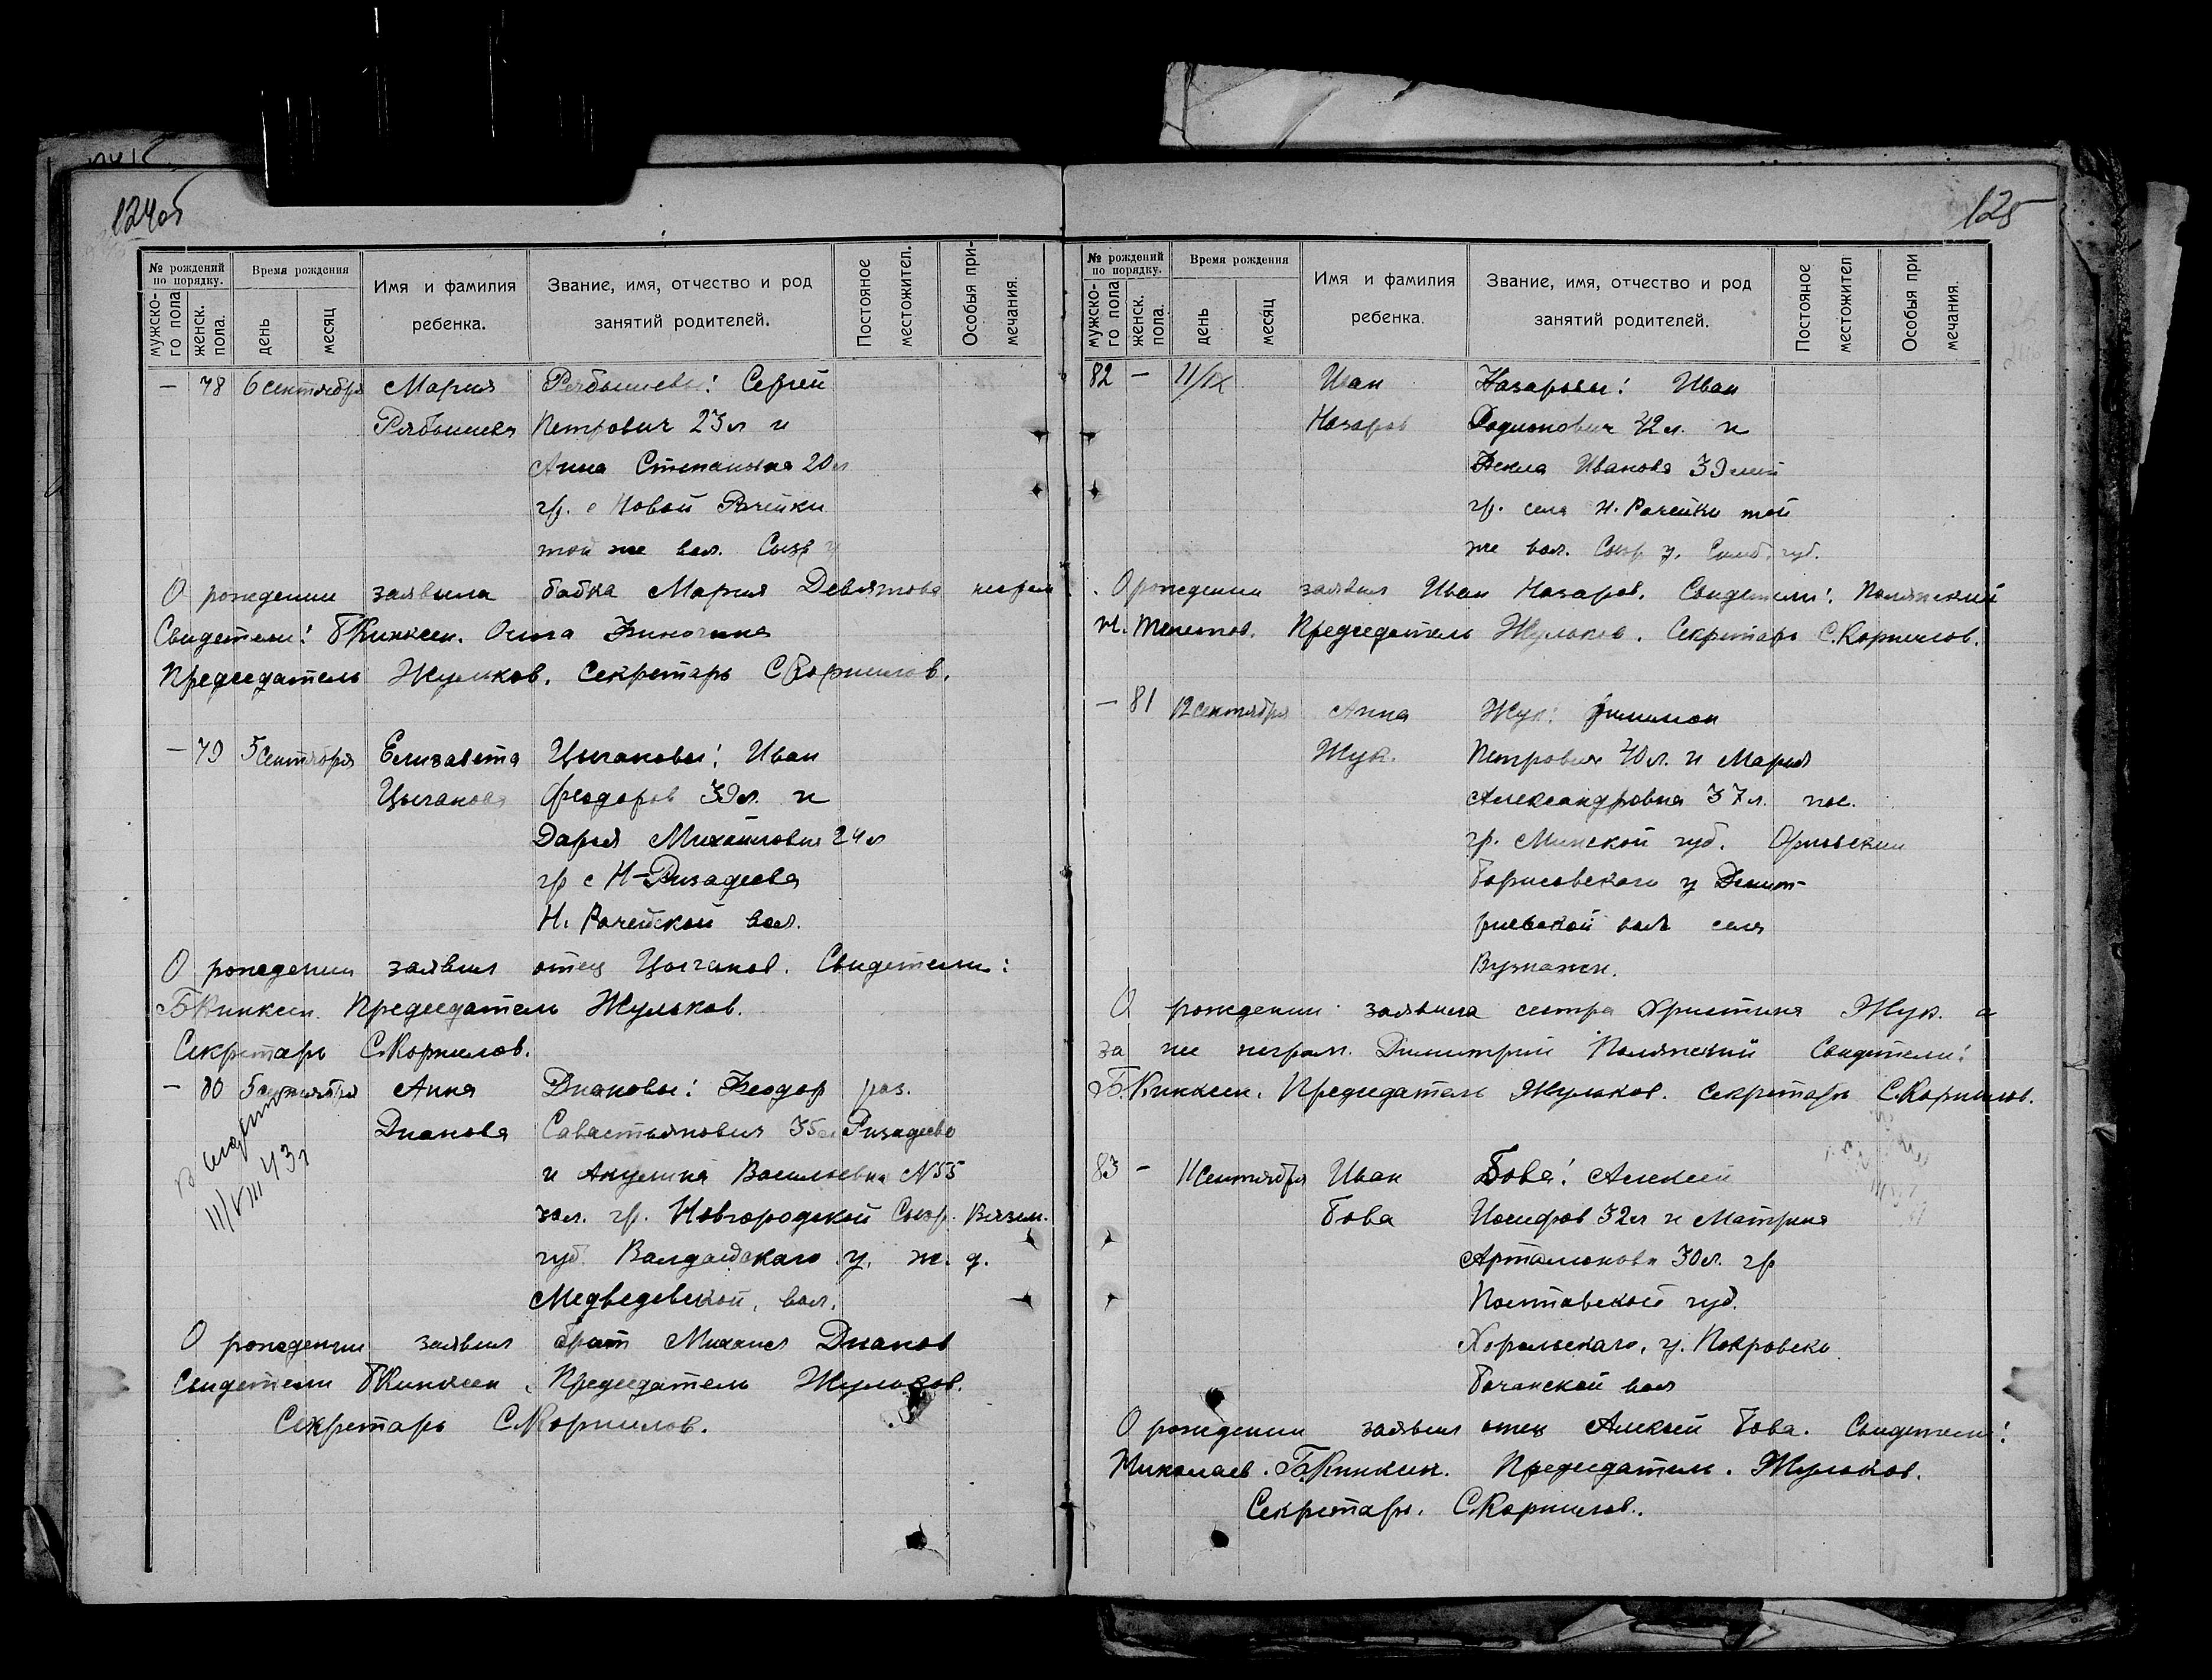 124об
№ рождений по порядку.
мужско-го пола
женск. пола.
Время рождения
день
месяц
Имя и фамилия ребенка.
Звание, имя, отчество и род занятий родителей.
Постояное местожител.
Особыя при-мечания.
— 78 6 сентября Мария Рябышевы: Сергей
Петрович 23 л и
Анна Степановна 20 л
гр. с Новой Рачейки
той же вол. Сызр у
О рождении заявила бабка Мария Девятова неграм
Свидетели: Б Кинксен.
Председатель Жульков. Секретарь С Корнилов.
— 79 5 сентября Елизавета Цыгановы: Иван
Цыганова Феодоров 39 л. и
Дарья Михайловна 24 л
гр с Н-Ризадеева
Н. Рачейской вол.
О рождении заявил отец Цыганов. Свидетели:
Б Кинксен. Председатель Жульков.
Секретарь С. Корнилов.
— 80 5 сентября Анна Диановы: Феодор раз.
Дианова Савастьянович 35 л. Ризадеево
и Акулина Васильевна №55
30 л. гр. Новгородской Сызр. Вязем.
губ. Валдайскаго у. ж. д.
Медведевской, вол.
III/VIII 43 г
О рождении заявил брат Михаил Дианов
Свидетели Б Кинксен. Председатель Жульков.
Секретарь С. Корнилов.
125
№ рождений по порядку.
мужско-го пола
женск. пола.
Время рождения
день
месяц
Имя и фамилия ребенка.
Звание, имя, отчество и род занятий родителей.
Постояное местожител
Особыя при мечания.
82 — 11/IX Иван Назаровы: Иван
Назаров Родионович 42 л. и
Фекла Иванова 39 лет
гр. села Н. Рачейки той
же вол. Сызр у. Симб. губ.
О рождении заявил Иван Назаров. Свидетели: Полянский
Председатель Жульков. Секретарь С. Корнилов.
— 81 12 сентября Анна Жук: Филимон
Жук. Петрович 40 л. и Мария
Александровна 37 л. пос.
гр. Минской губ. Орловский
Борисовскаго у Димит-
риевской вол села
О рождении заявила сестра Христина Жук. а
за нее неграм. Димитрий Полянский Свидетели:
Б. Кинксен. Председатель Жульков. Секретарь С. Корнилов.
83 — 11 сентября Иван Бова: Алексей
Бова Иосифов 32 л и Матрина
Артамонова 30 л. гр
Полтавской губ.
Хорольскаго, у. Покровско
Бачанской вол
О рождении заявил отец Алексей Бова. Свидетели:
Николаев. Б. Кинксен. Председатель. Жульков.
Секретарь. С. Корнилов.